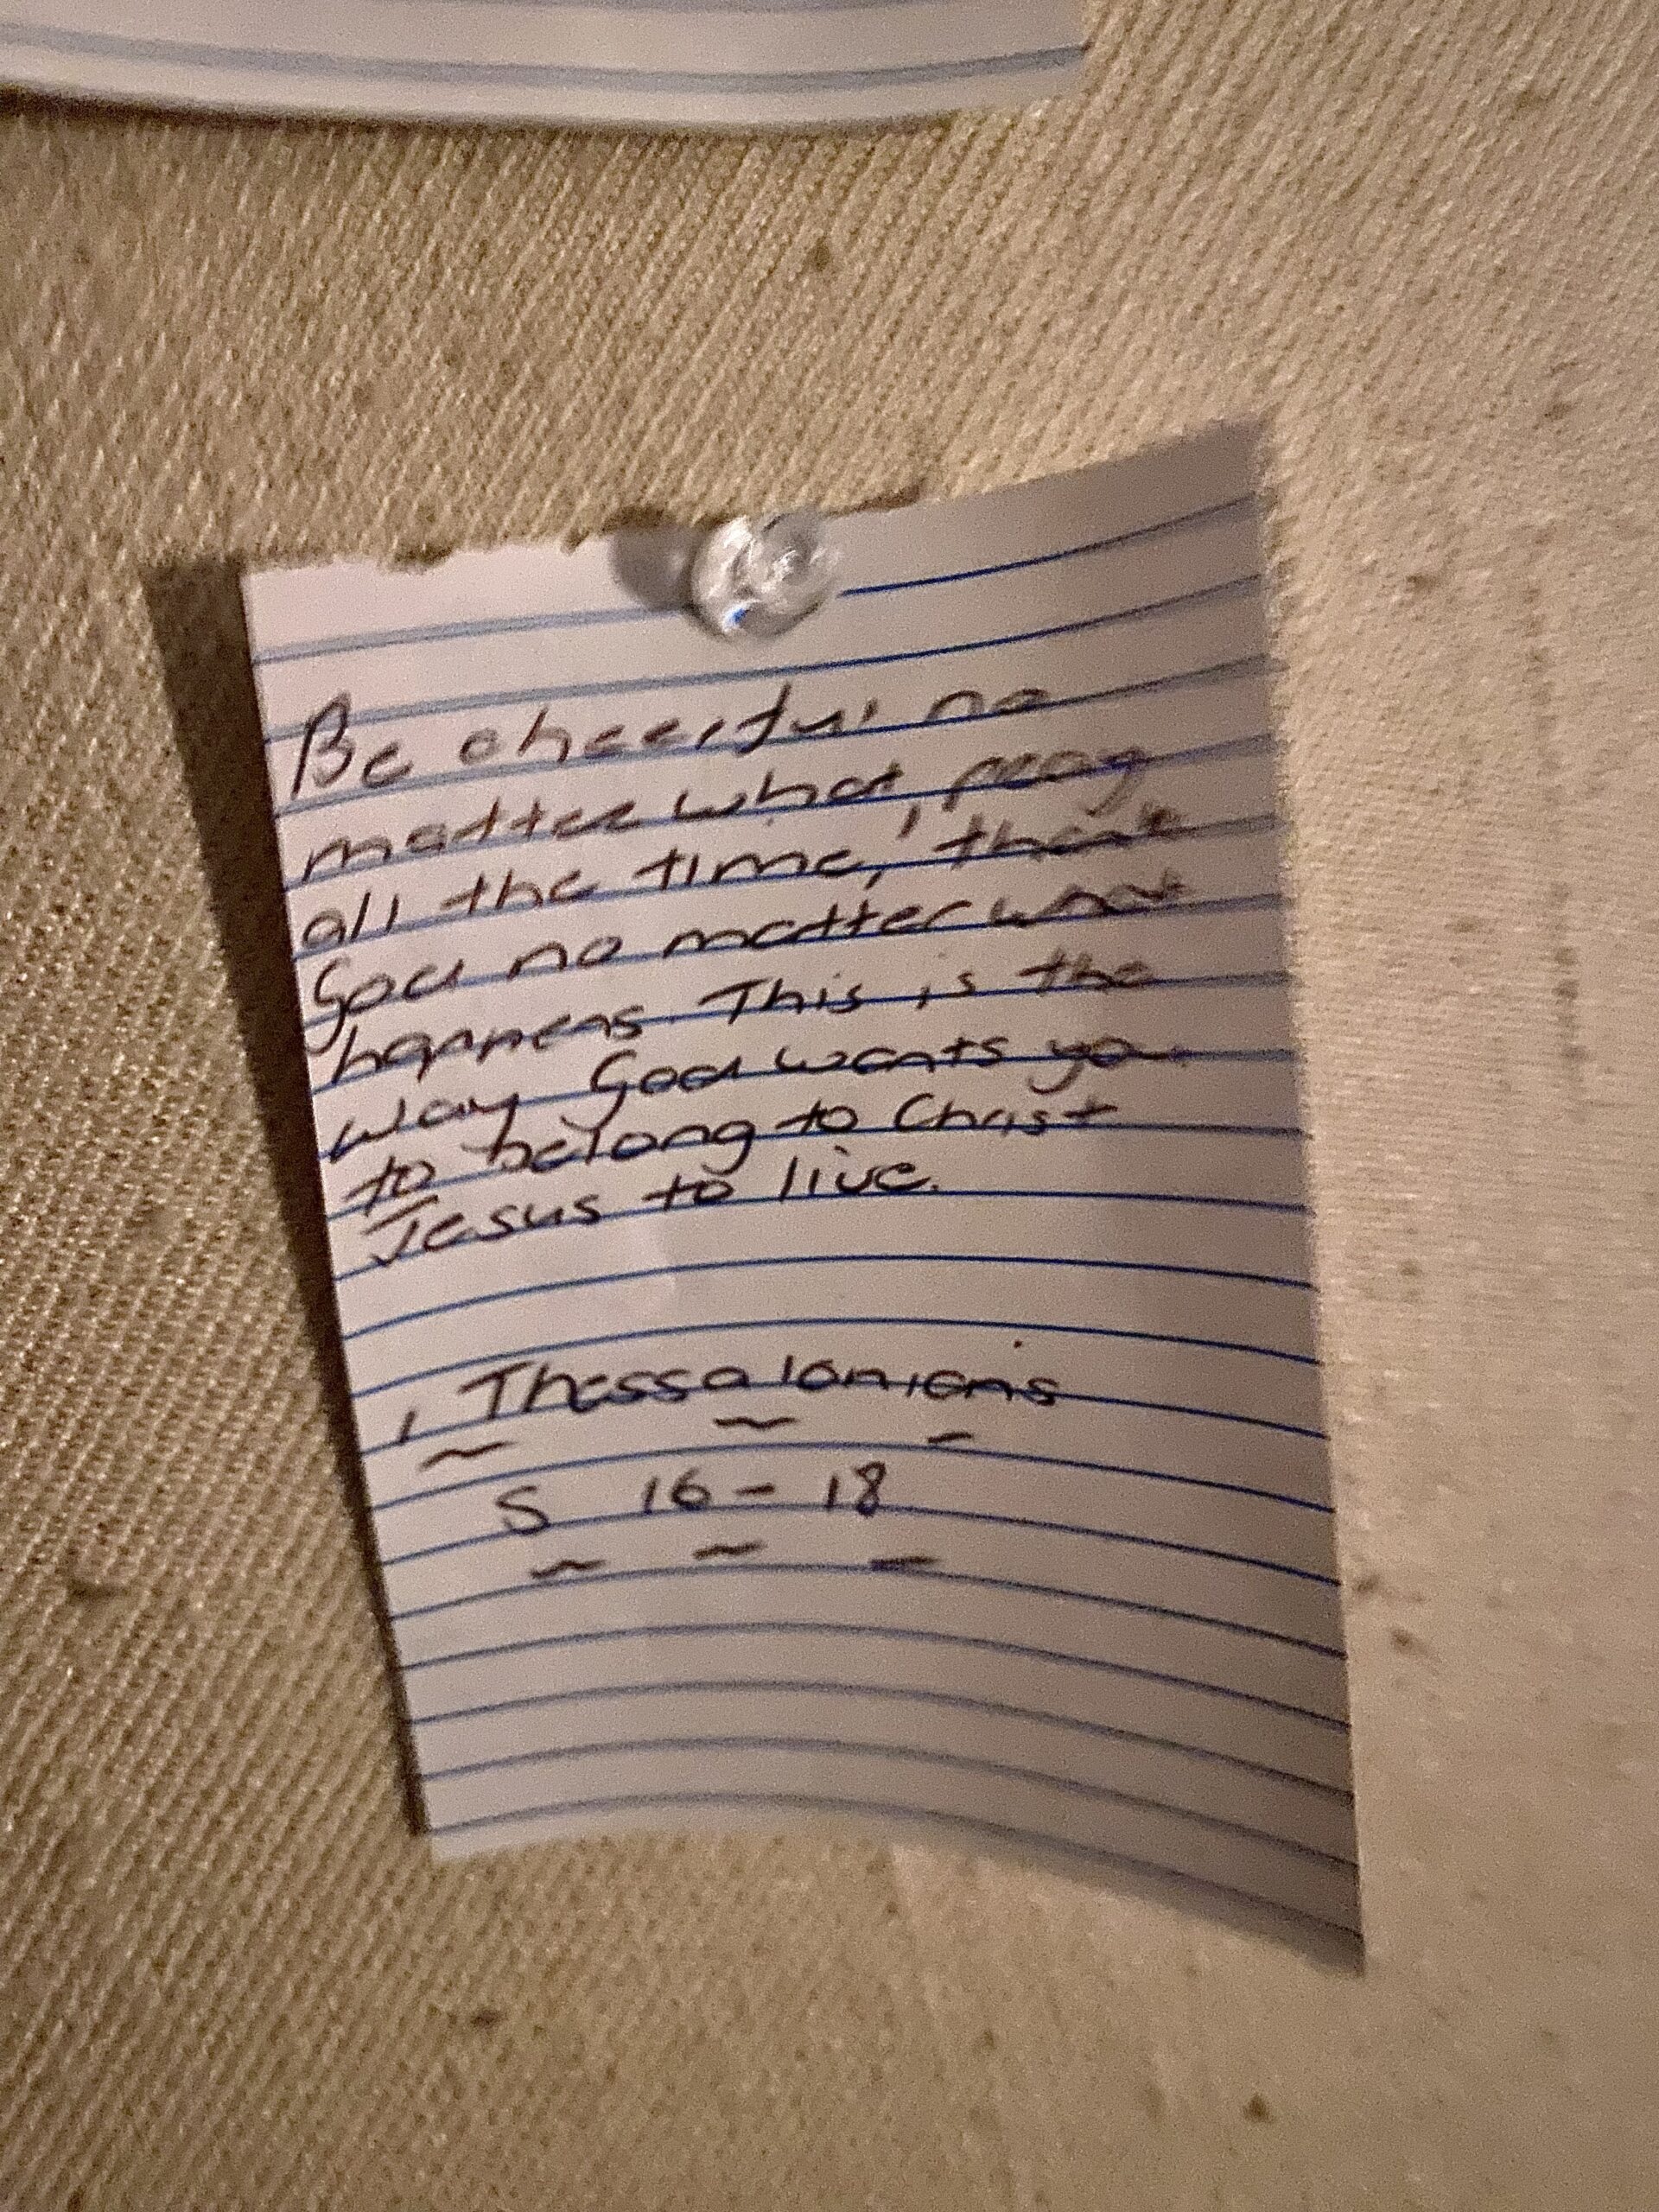 Be cheerful no
matter what, pray
all the time, thank
God no matter what
happens This is the
way God wants you
to belong to Christ
Jesus to live.
1 Thessalonians
5 16 - 18